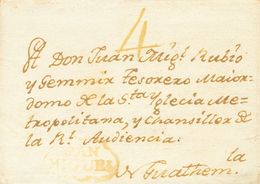 4
A Don Juan Migl Rubio
y Gemmir Tesorero Maior-
domo de la Sta Iglecia Me-
tropolitana, y Chansillor de
la Rl Audiencia.
la
Guathem.